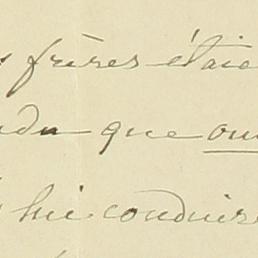 frères étaie
que ou
lui conduire